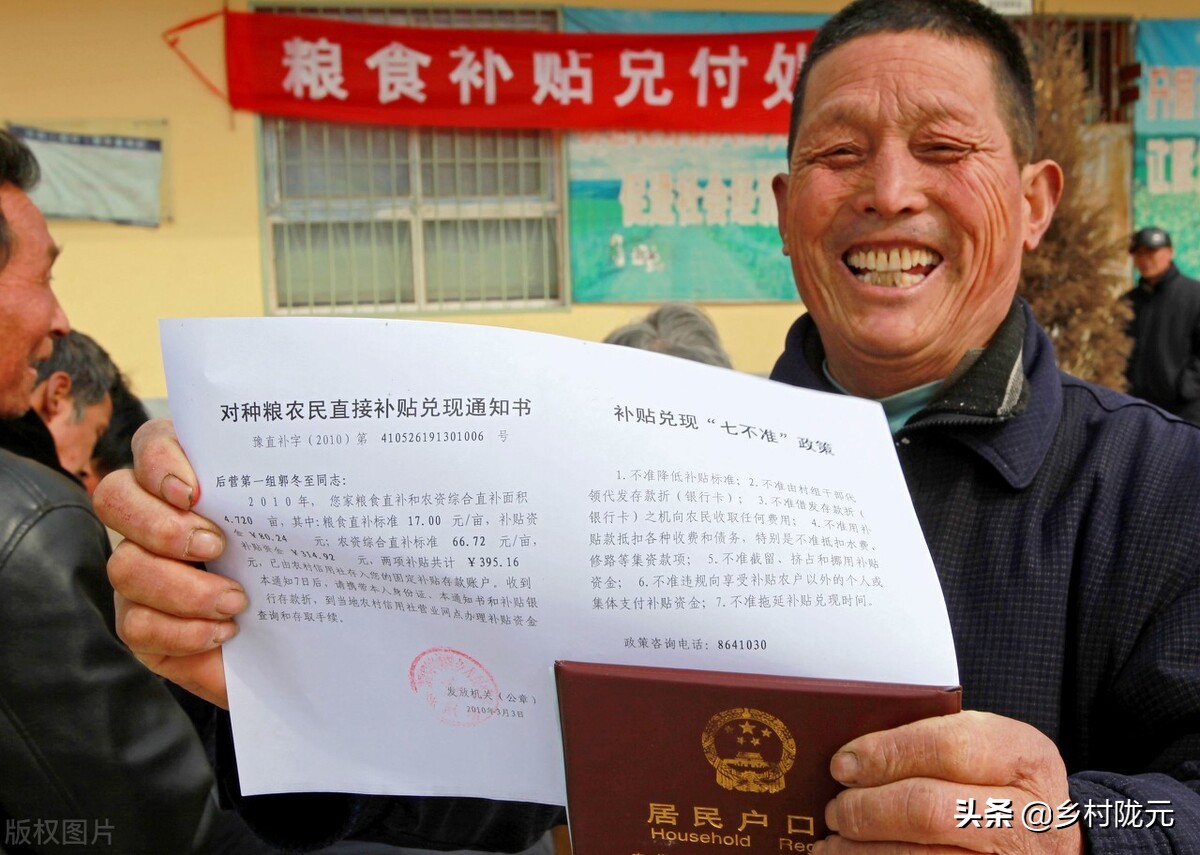 粮食补贴兑付处
对种粮农民直接补贴兑现通知书
豫直补字（2010）第 410526191301006 号
后营第一组郭冬至同志：
2010年，您家粮食直补和农资综合直补面积
4.720 亩，其中：粮食直补标准 17.00 元/亩，补贴资
金 ￥80.24 元；农资综合直补标准 66.72 元/亩，
补贴资金 ￥314.92 元，两项补贴共计 ￥395.16
元，已由农村信用社存入您的固定补贴存款账户。收到
本通知7日后，请携带本人身份证、本通知书和补贴银
行存款折，到当地农村信用社营业网点办理补贴资金
查询和存取手续。
发放机关（公章）
2010年3月3日
补贴兑现“七不准”政策
1.不准降低补贴标准；2.不准由村组干部代
领代发存款折（银行卡）；3.不准借发存款折
（银行卡）之机向农民收取任何费用；4.不准用补
贴款抵扣各种收费和债务，特别是不准抵扣水费、
修路等集资款项；5.不准截留、挤占和挪用补贴
资金；6.不准违规向享受补贴农户以外的个人或
集体支付补贴资金；7.不准拖延补贴兑现时间。
政策咨询电话：8641030
居民户口
Household Reg
版权图片
头条 @乡村陇元